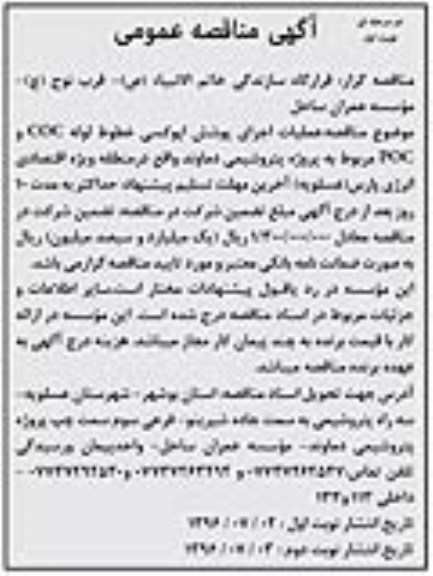 آگهی مناقصه عمومی
مناقصه گزار: قرارگاه سازندگی خاتم الانبیاء (ص)- قرب نوح (ع)-
موسسه عمران ساحل
موضوع مناقصه:عملیات اجرای پوشش اپوکسی خطوط لوله COC و
POC مربوط به پروژه پتروشیمی دماوند واقع درمنطقه ویژه اقتصادی
انرژی پارس(عسلویه) آخرین مهلت تسلیم پیشنهاد: حداکثر به مدت ۱۰
روز بعد از درج آگهی مبلغ تضمین شرکت در مناقصه: تضمین شرکت در
مناقصه معادل ۱/۳۰۰/۰۰۰/۰۰۰ ریال (یک میلیارد و سیصد میلیون) ریال
به صورت ضمانت نامه بانکی معتبر و مورد تایید مناقصه گزار می باشد.
این موسسه در رد یاقبول پیشنهادات مختار است.سایر اطلاعات و
جزئیات مربوط در اسناد مناقصه درج شده است. این موسسه در ارائه
کار با قیمت برنده به چند پیمان کار مجاز میباشد. هزینه درج آگهی به
عهده برنده مناقصه میباشد.
آدرس جهت تحویل اسناد مناقصه: استان بوشهر - شهرستان عسلویه-
سه راه پتروشیمی به سمت جاده شیرینو- فرعی سوم سمت چپ پروژه
پتروشیمی دماوند- موسسه عمران ساحل- واحدپیمان ورسیدگی
تلفن تماس:
داخلی ۲۱۳ و
تاریخ انتشار نوبت اول : ۰۲ / ۰۷ / ۱۳۹۶
تاریخ انتشار نوبت دوم: ۰۳ / ۰۷ / ۱۳۹۶